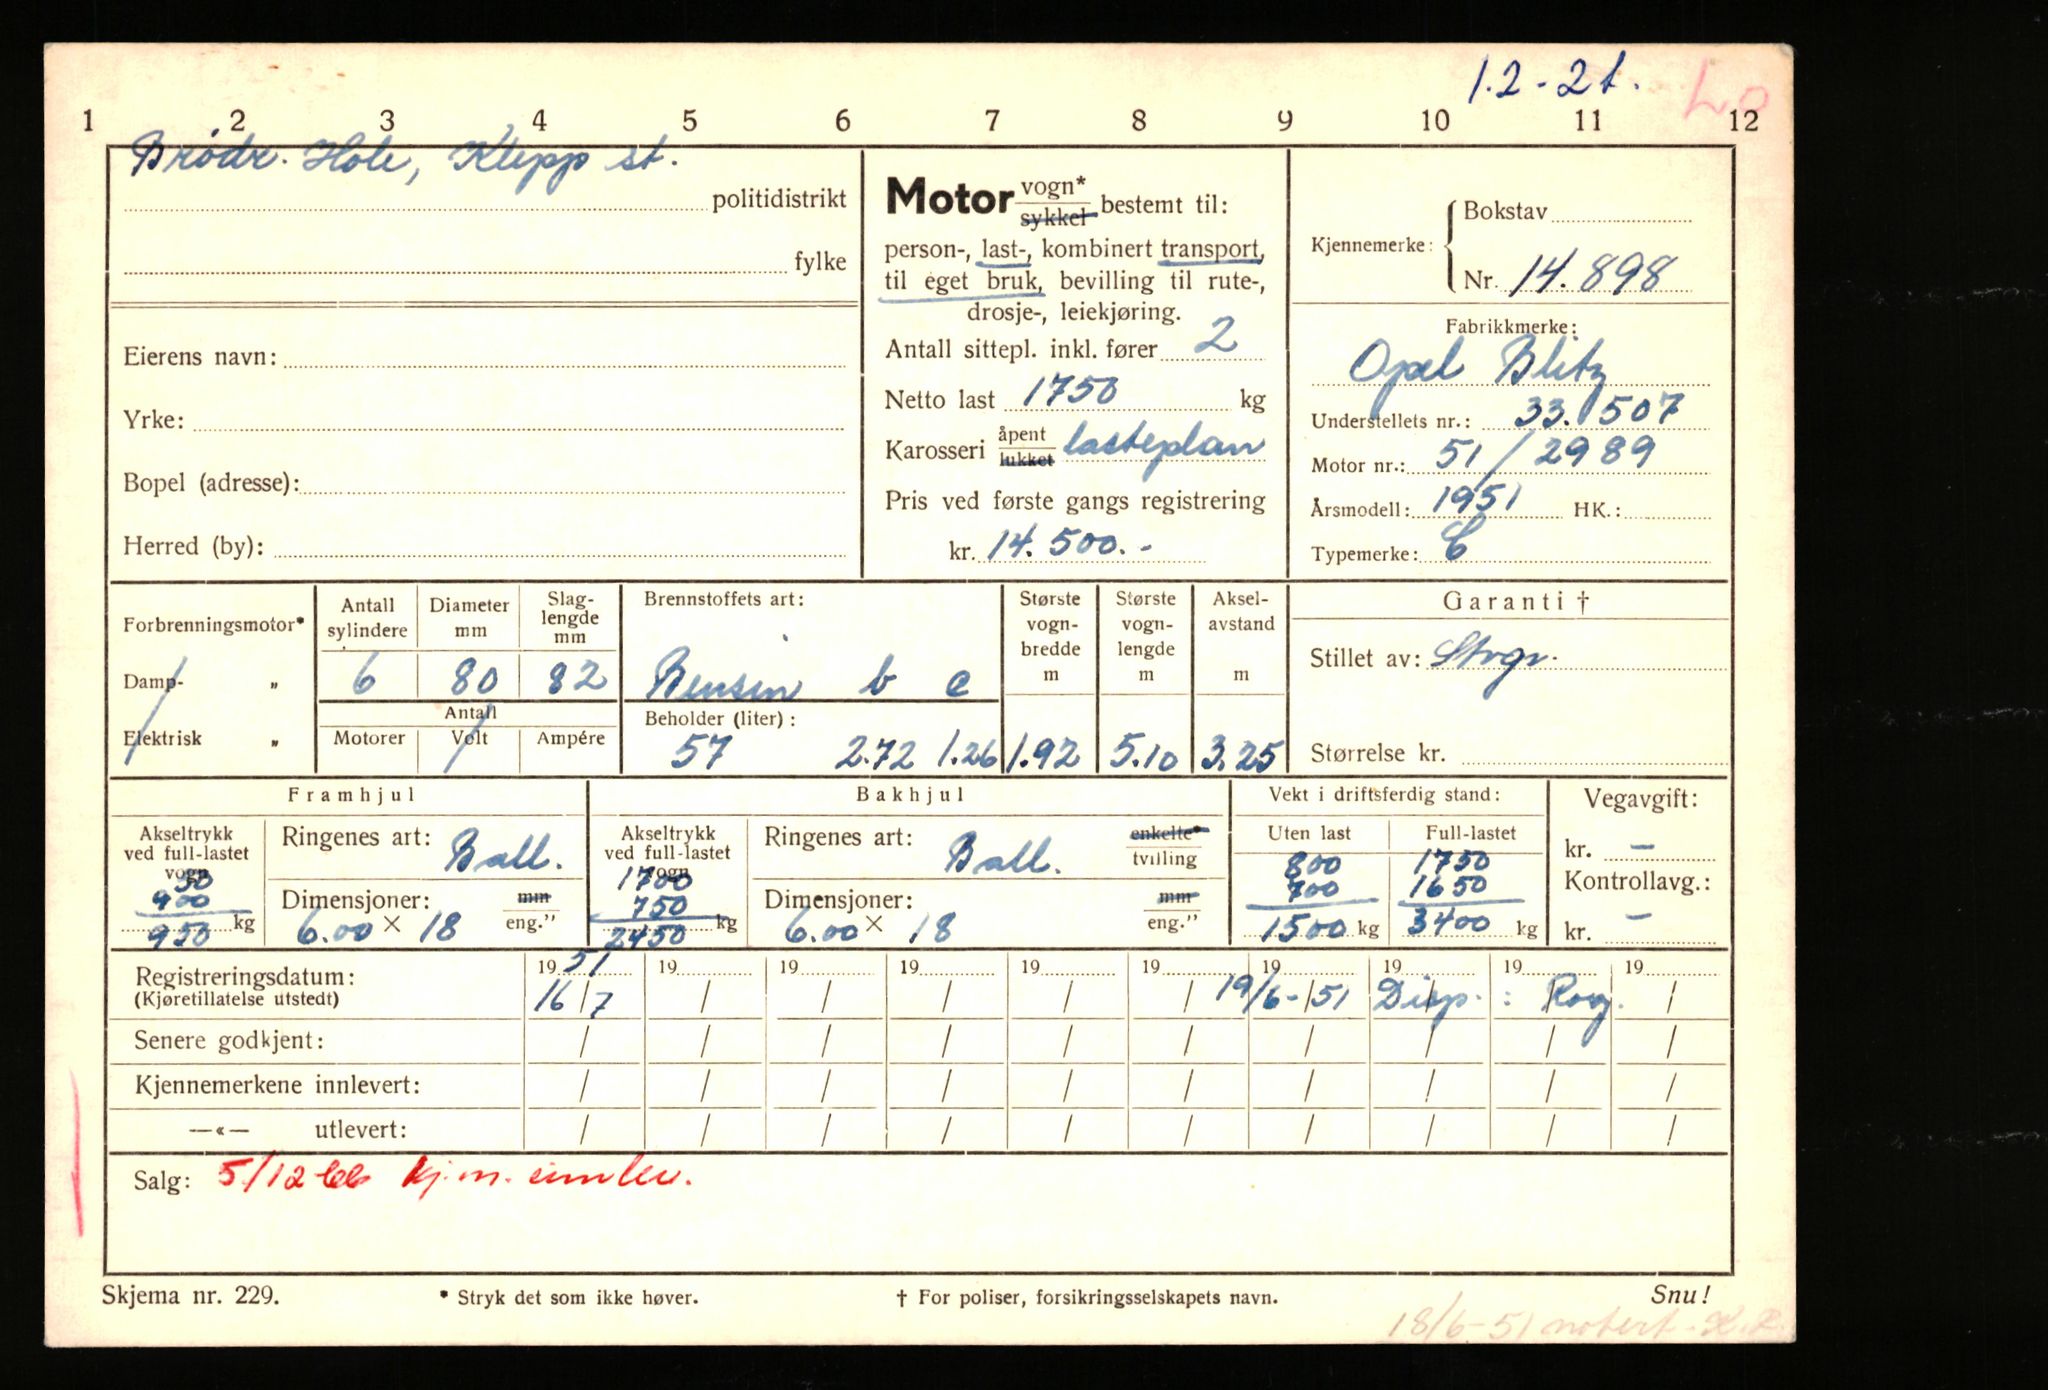 1.2-2t. Lo
1 2 3 4 5 6 7 8 9 10 11 12
Brødr. Hole, Klepp st.
politidistrikt
fylke
Eierens navn:
Yrke:
Bopel (adresse):
Herred (by):
Motor vogn* sykkel bestemt til:
person-, last-, kombinert transport,
til eget bruk, bevilling til rute-,
drosje-, leiekjøring.
Antall sittepl. inkl. fører 2
Netto last 1750 kg
Karosseri åpent lukket lasteplan
Pris ved første gangs registrering
kr. 14.500.-
Kjennemerke: Bokstav
Nr. 14.898
Fabrikkmerke:
Opel Blitz
Understellets nr.: 33.507
Motor nr.: 51/2989
Årsmodell: 1951 HK.:
Typemerke: C
Forbrenningsmotor*
Damp- „
Elektrisk „
Antall sylindere
6
Diameter mm
80
Slag-lengde mm
82
Antall
Motorer Volt Ampére
Brennstoffets art:
Bensin b c
Beholder (liter):
57 2.72 1.26
Største vogn-bredde m
1.92
Største vogn-lengde m
5.10
Aksel-avstand m
3.25
Garanti †
Stillet av: Stvgr.
Størrelse kr.
Framhjul
Akseltrykk ved full-lastet vogn
50
900
950 kg
Ringenes art: Ball.
Dimensjoner: mm eng."
6.00 × 18
Bakhjul
Akseltrykk ved full-lastet vogn
1700
750
2450 kg
Ringenes art: Ball. enkelte* tvilling
Dimensjoner: mm eng."
6.00 × 18
Vekt i driftsferdig stand:
Uten last Full-lastet
800 1750
700 1650
1500 kg 3400 kg
Vegavgift:
kr. —
Kontrollavg.:
kr. —
Registreringsdatum: 19 51 19 19 19 19 19 19 19 19 19
(Kjøretillatelse utstedt) 16/7 / / / / / 19/6-51 Disp. : Rog. /
Senere godkjent: / / / / / / / / / /
Kjennemerkene innlevert: / / / / / / / / / /
—«— utlevert: / / / / / / / / / /
Salg: 5/12 66 kj.m. innlev.
Skjema nr. 229. * Stryk det som ikke høver. † For poliser, forsikringsselskapets navn. Snu!
18/6-51 notert. K.R.